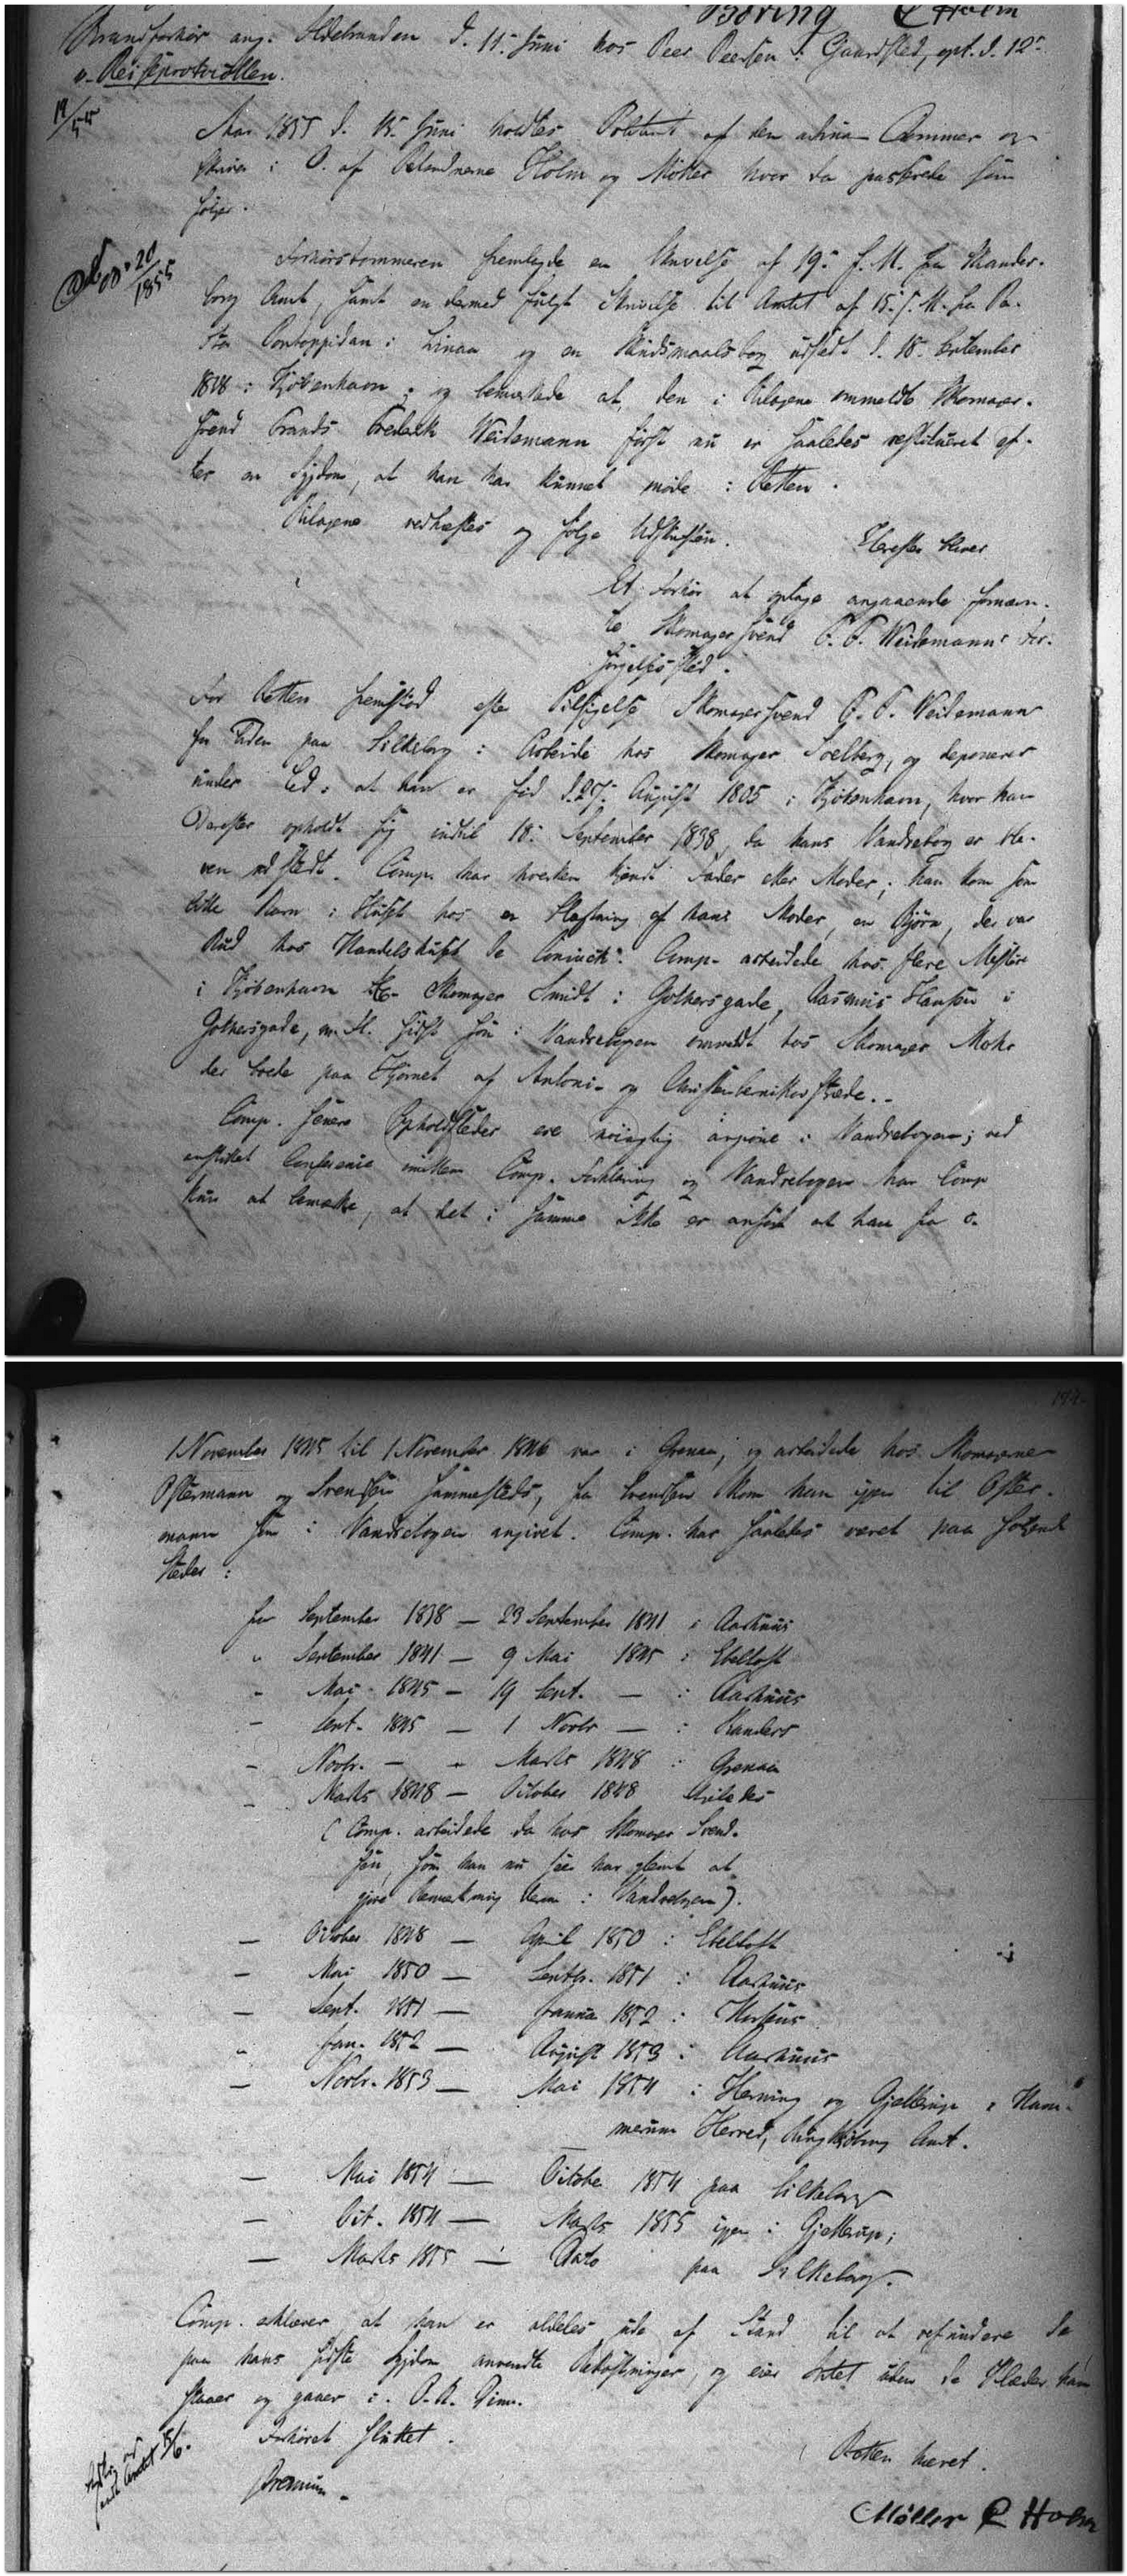 Böring C Holm
Brandforhör ang. Ildebranden d. 11. Juni hos Peer Peersen i Gaardsted, opt. d. 12
v. Reiseprotocollen.
19/55
Aar 1855 d. 15. Juni holdtes Politiret af den admin. Dommer og
Skriver i O. af Retsvidnerne Holm og Möller hvor da passerede som
fölger.
20/1855
Forhörsdommeren fremlagde en Skrivelse af 19. f. M. fra Skander-
borg Amt, samt en dermed fulgt Skrivelse til Amtet af 15. f. M. fra Pa-
stor Pontoppidan i Linaa og en Skudsmaalsbog udstedt d. 18. September
1838 i Kjöbenhavn; og bemærkede at den i Bilagene ommeldte Skomager-
svend Frands Frederik Weidemann först nu er saaledes restitueret ef-
ter en Sygdom, at han har kunnet möde i Retten.
Bilagene vedhæftes og fölge Udskriften.
Herefter blev
Et Forhör at optage angaaende fornævn-
te Skomagersvend F. F. Weidemanns For-
sörgelsessted.
For Retten fremstod efter Tilsigelse Skomagersvend F. F. Weidemann
for Tiden paa Silkeborg i Arbeide hos Skomager Soelberg, og deponerer
under Ed: at han er föd d. 27. August 1805 i Kjöbenhavn, hvor han
derefter opholdt sig indtil 18. September 1838, da hans Vandrebog er ble-
ven udstedt. Comp. har hverken kjendt Fader eller Moder; han kom som
lille Barn i Huset hos en Slægtning af hans Moder, en Björn, der var
Bud hos Handelshuset de Coninck. Comp. arbeidede hos flere Mestere
i Kjöbenhavn Skomager Smidt i Gothersgade, Rasmus Hansen i
Gothersgade, m. Fl. sidst som i Vandrebogen ommeldt hos Skomager Mohr
der boede paa Hjörnet af Antoni- og Christenbernikov Stræde.-
Comp. senere Opholdssteder ere nöiagtig angivne i Vandrebogen; ved
anstillet Conference imellem Comp. Forklaring og Vandrebogen har Comp
kun at bemærke, at det i samme ikke er anfört at han fra
1 November 1845 til 1 November 1846 var i Grenaa, og arbeidede hos Skomagerne
Ostermann og Svendsen sammesteds, fra Svendsen kom han igjen til Oster-
mann som i Vandrebogen angivet. Comp. har saaledes været paa fölgende
Steder:
fra September 1838 — 23 September 1841 i Aarhuus
" September 1841 — 9 Mai 1845 i Ebeltoft
- Mai 1845 — 19 Sept. — i Aarhuus
- Sept. 1845 — 1 Novbr — i Randers
- Novbr. — " Marts 1848 i Grenaa
- Marts 1848 — October 1848
( Comp. arbeidede da hos Skomager Svend-
sen, som han nu seer har glemt at
gjöre Bemærkning derom i Vandrebogen).
— October 1848 — April 1850 i Ebeltoft
— Mai 1850 — Septbr. 1851 i Aarhuus
— Sept. 1851 — Januar 1852 i Horsens
" Jan. 1852 — August 1853 i Aarhuus
— Novbr. 1853 — Mai 1854 i Herning og Gjellerup i Ham-
merum Herred, Ringkjöbing Amt.
— Mai 1854 — October 1854 paa Silkeborg
— Oct. 1854 — Marts 1855 igjen i Gjellerup;
— Marts 1855 — Dato paa Silkeborg.
Comp. erklærer, at han er aldeles ude af Stand til at refundere de
paa hans sidste Sygdom anvendte Bekostninger, og eier Intet uden de Klæder han
staaer og gaaer i. O. R. Dim.
Forhöret sluttet.
Retten hævet.
Möller C Holm